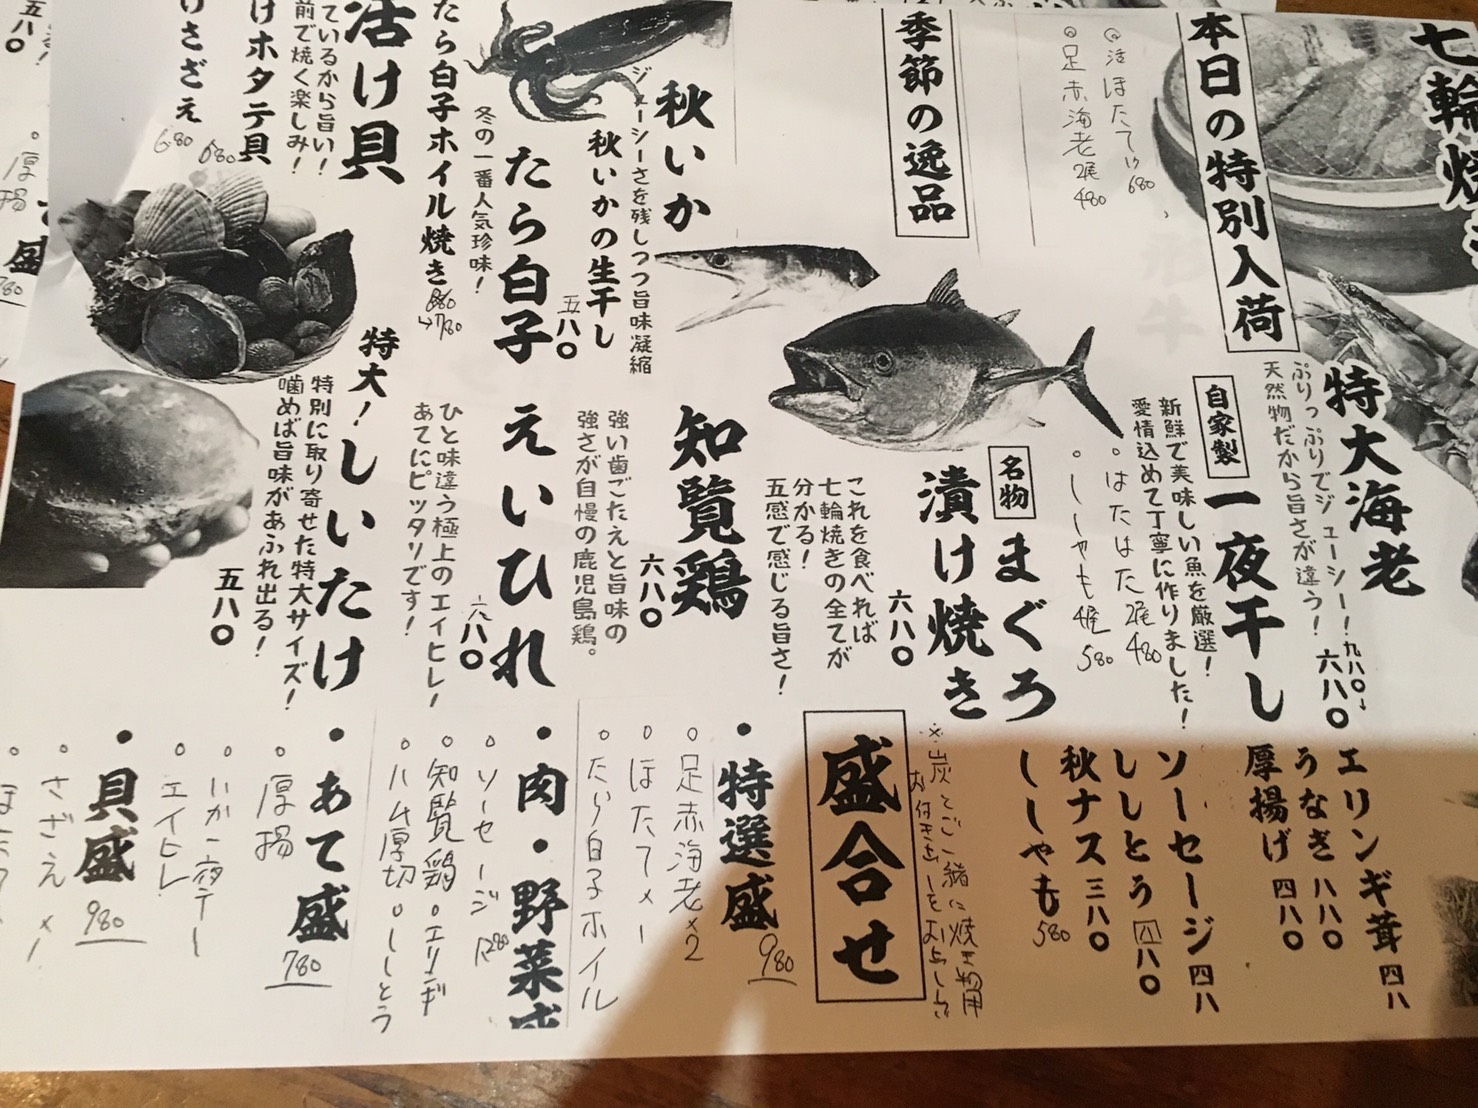 七輪焼
本日の特別入荷
活ほたて1ヶ680
足赤海老2尾480
季節の逸品
秋いか
ジューシーさを残しつつ旨味凝縮
秋いかの生干し
五八〇
たら白子
冬の一番人気珍味!
たら白子ホイル焼き
880
→780
活け貝
ているから旨い!
前で焼く楽しみ!
けホタテ貝
680
けさざえ
680
特大海老
ぷりっぷりでジューシー!
天然物だから旨さが違う!
九八〇→
六八〇
自家製
一夜干し
新鮮で美味しい魚を厳選!
愛情込めて丁寧に作りました!
・はたはた2尾480
・ししゃも4尾580
名物
まぐろ
漬け焼き
六八〇
これを食べれば
七輪焼きの全てが
分かる!
五感で感じる旨さ!
知覧鶏
六八〇
強い歯ごたえと旨味の
強さが自慢の鹿児島鶏。
えいひれ
八〇
ひと味違う極上のエイヒレ!
あてにピッタリです!
特大!しいたけ
特別に取り寄せた特大サイズ!
噛めば旨味があふれ出る!
五八〇
エリンギ茸 四八
うなぎ 八八〇
厚揚げ 四八〇
ソーセージ 四八
ししとう
八〇
秋ナス 三八〇
ししゃも 580
※炭とご一緒に焼き物用
盛合せ
・特選盛
980
○足赤海老×2
○ほたて×1
○たら白子ホイル
・肉・野菜盛
○ソーセージ
○知覧鶏 ○エリンギ
○ハム厚切 ○ししとう
・あて盛
780
○厚揚
○いか一夜干し
○エイヒレ
・貝盛
980
○さざえ×1
五八〇
厚揚
盛
780